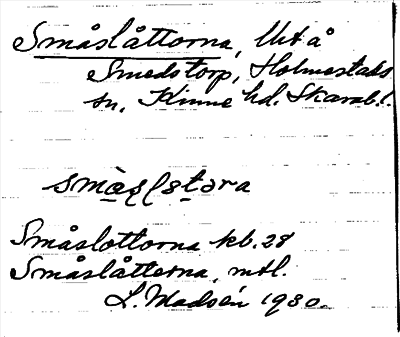 Småslåttorna, Ut å
Smedstorp, Holmestads
sn, Kinne hd. Skarab.l.
Småslottorna kb. 28
Småslåtterna, mtl.
L. Madsén 1930.